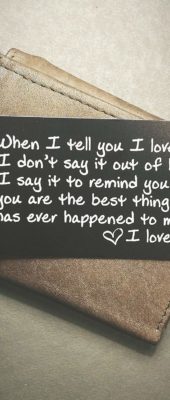 When I tell you I love
I don't say it out of
I say it to remind you
you are the best thing
has ever happened to
I love